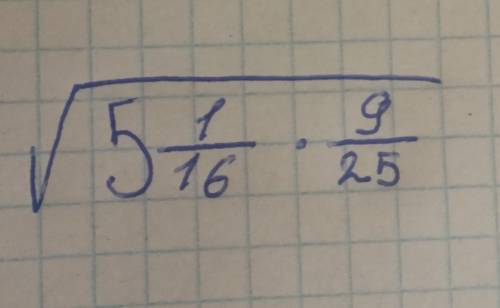 √(5 1/16 · 9/25)